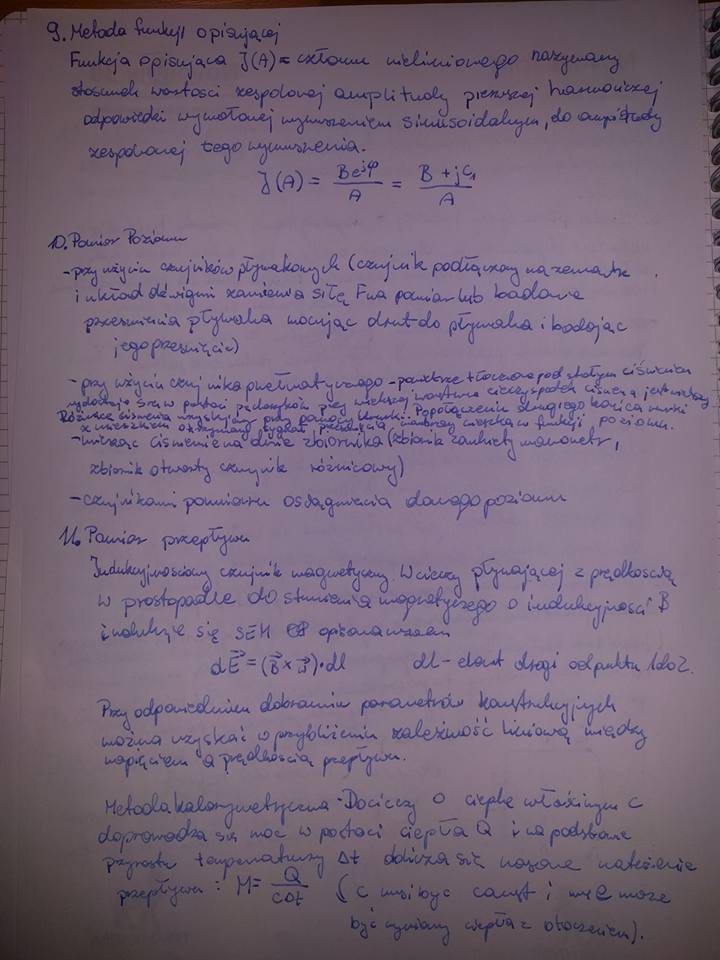 9. Metoda funkcji opisującej
Funkcja opisująca J(A) = członu nieliniowego nazywamy
stosunek wartości zespolonej amplitudy pierwszej harmonicznej
odpowiedzi wywołanej wymuszeniem sinusoidalnym, do amplitudy
zespolonej tego wymuszenia.
J(A) = Be^jφ / A = B + jC₁ / A
10. Pomiar Poziomu
- przy użyciu czujników pływakowych (czujnik podłączony na zewnątrz
i układ dźwigni zamienia siłę F na pomiar lub badanie
przesunięcia pływaka mocując drut do pływaka i badając
jego przesunięcie)
- przy użyciu czujnika pneumatycznego - powietrze tłoczone pod stałym ciśnieniem
wydostaje się w postaci pęcherzyków przy większej warstwie cieczy spadek ciśnienia jest większy
Różnicę ciśnienia uzyskujemy przy pomocy rurki. Po połączeniu drugiego końca rurki
z otrzymamy sygnał cieczy w funkcji poziomu.
- mierząc ciśnienie na dnie zbiornika (zbiornik zamknięty manometr,
zbiornik otwarty czujnik różnicowy)
- czujnikami pomiaru osiągnięcia danego poziomu
11. Pomiar przepływu
Indukcyjnościowy czujnik magnetyczny. W cieczy pływającej z prędkością
w prostopadle do strumienia magnetycznego o indukcyjności B
indukuje się SEM opisana wzorem
dE⃗ = (B⃗ × w⃗) · dl dl - element drogi od punktu 1 do 2.
Przy odpowiednim dobraniu parametrów konstrukcyjnych
można uzyskać w przybliżeniu zależność liniową między
napięciem a prędkością przepływu.
Metoda kalorymetryczna - Do cieczy o cieple właściwym c
doprowadza się moc w postaci ciepła Q i na podstawie
przyrostu temperatury Δt oblicza się masowe natężenie
przepływu : M = Q / cΔt (c musi być const i nie może
być wymiany ciepła z otoczeniem).